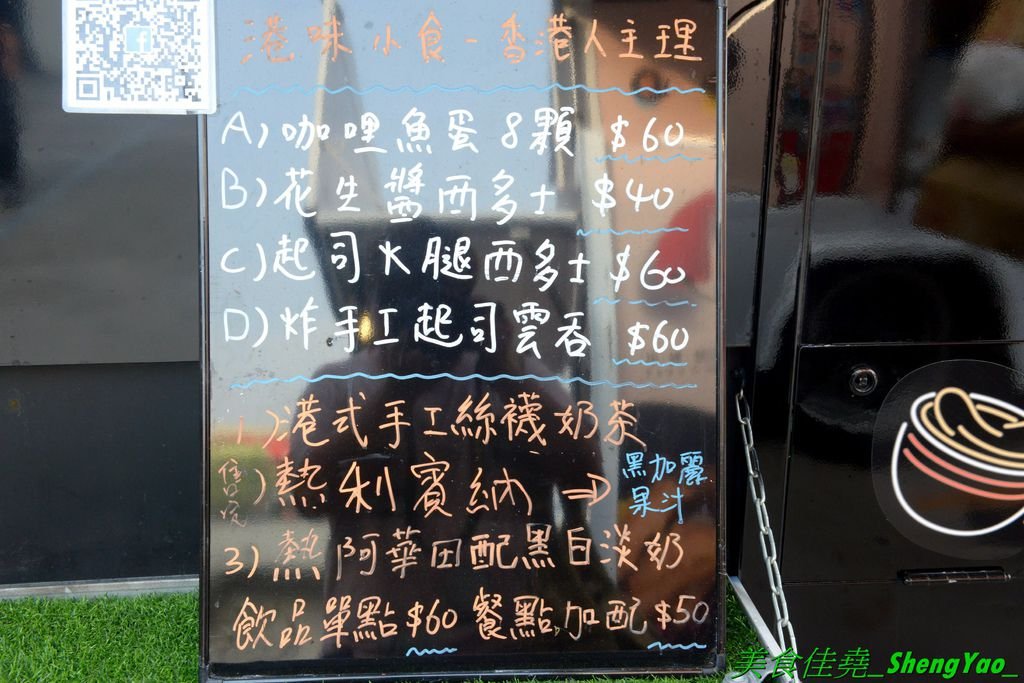 港味小食-香港人主理
A)咖哩魚蛋8顆 $60
B)花生醬西多士 $40
C)起司火腿西多士 $60
D)炸手工起司雲吞 $60
1)港式手工絲襪奶茶
售完)熱利賓納⇒黑加麗果汁
3)熱阿華田配黑白淡奶
飲品單點$60 餐點加配$50
美食佳堯_ShengYao_